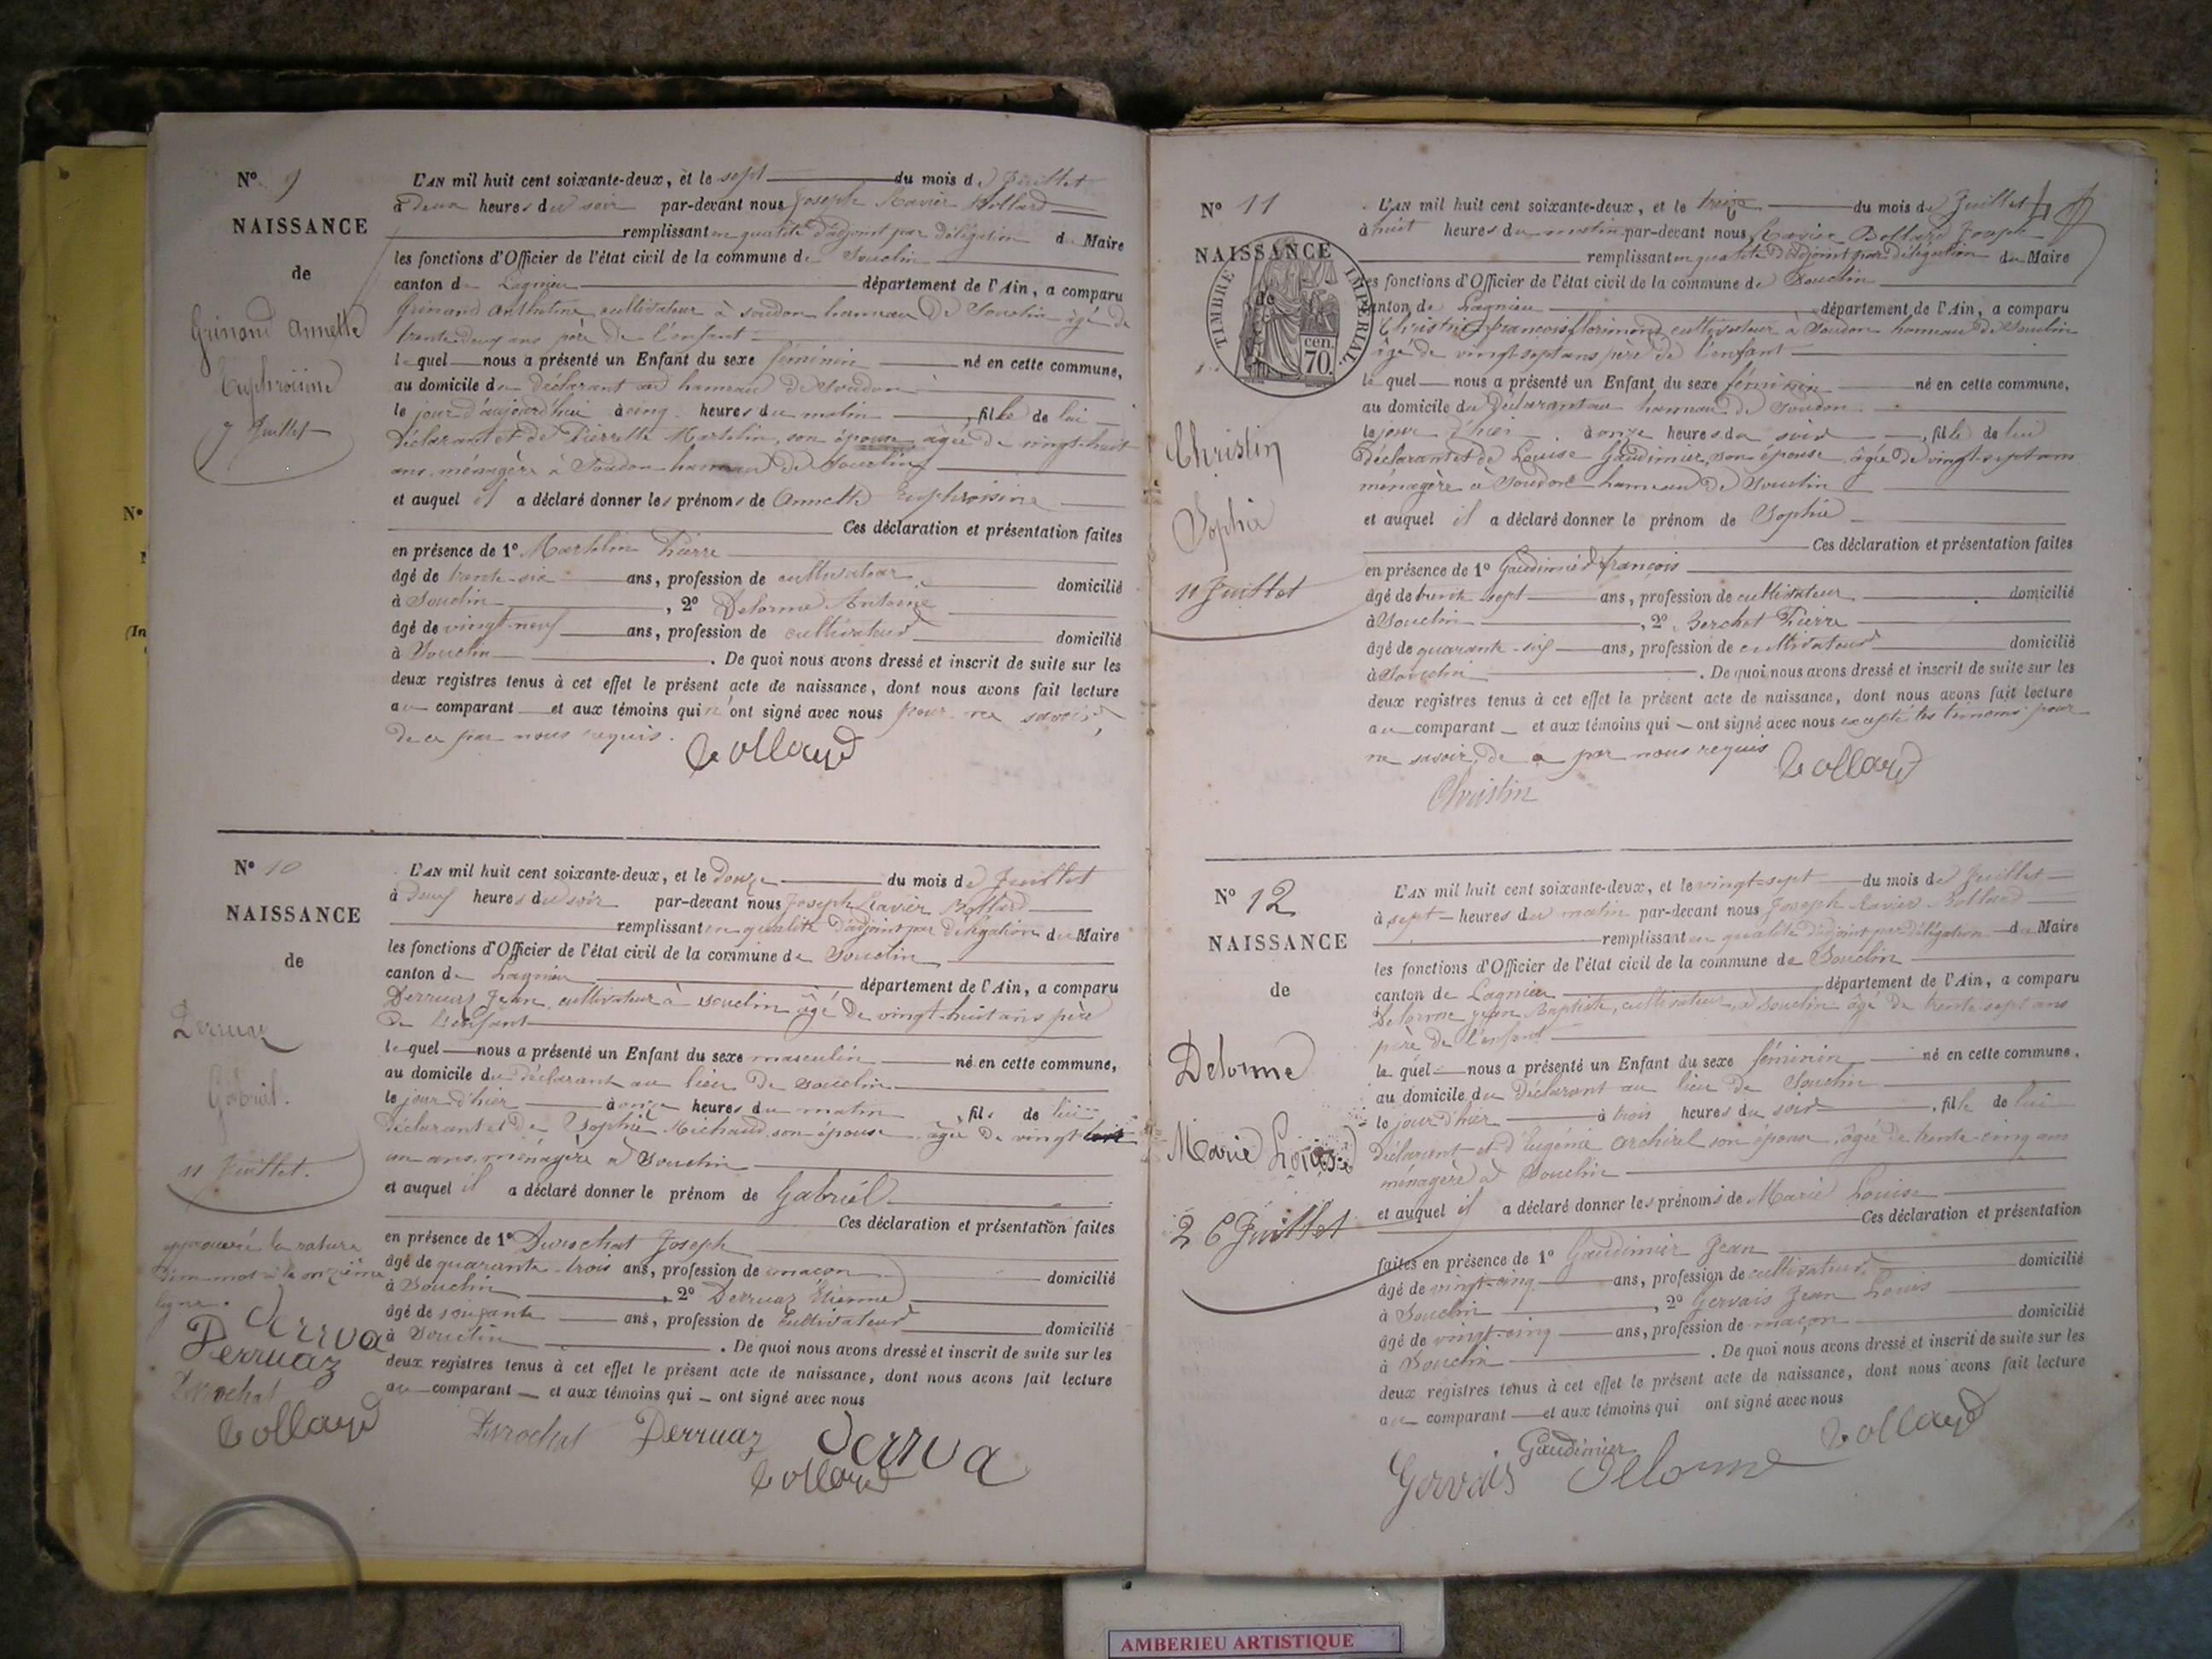 N° 9
NAISSANCE
de
Grinand Annette
Euphroisine
7 Juillet
L'AN mil huit cent soixante-deux, et le sept du mois de Juillet
à deux heures du soir par-devant nous Joseph Xavier Bollard
remplissant en qualité d'adjoint par délégation du Maire
les fonctions d'Officier de l'état civil de la commune de Souclin
canton de Lagnieu département de l'Ain, a comparu
Grinand Anthelme cultivateur à Soudon hameau de Souclin âgé de
trente deux ans père de l'enfant
lequel nous a présenté un Enfant du sexe féminin né en cette commune,
au domicile du déclarant au hameau de Soudon
le jour d'aujourd'hui à cinq heures du matin, fille de lui
déclarant et de Pierrette Martelin, son épouse âgée de vingt-huit
ans, ménagère à Soudon hameau de Souclin
et auquel il a déclaré donner les prénoms de Annette Euphroisine
Ces déclaration et présentation faites
en présence de 1° Martelin Pierre
âgé de trente-six ans, profession de cultivateur domicilié
à Souclin, 2° Delorme Antoine
âgé de vingt-neuf ans, profession de cultivateur domicilié
à Souclin. De quoi nous avons dressé et inscrit de suite sur les
deux registres tenus à cet effet le présent acte de naissance, dont nous avons fait lecture
au comparant et aux témoins qui n'ont signé avec nous pour ne savoir,
de ce par nous requis. Bollard
N° 10
NAISSANCE
de
Derruaz
Gabriel.
11 Juillet.
approuvé la rature
d'un mot à la onzième
ligne.
Derrua
Derruaz
Durochat
Bollard
L'AN mil huit cent soixante-deux, et le douze du mois de Juillet
à deux heures du soir par-devant nous Joseph Xavier Bollard
remplissant en qualité d'adjoint par délégation du Maire
les fonctions d'Officier de l'état civil de la commune de Souclin
canton de Lagnieu département de l'Ain, a comparu
Derruaz Jean, cultivateur à Souclin âgé de vingt-huit ans père
de l'enfant
lequel nous a présenté un Enfant du sexe masculin né en cette commune,
au domicile du déclarant au lieu de Souclin
le jour d'hier à onze heures du matin, fils de lui
déclarant et de Sophie Michaud son épouse âgée de vingt
un ans, ménagère à Souclin
et auquel il a déclaré donner le prénom de Gabriel
Ces déclaration et présentation faites
en présence de 1° Durochat Joseph
âgé de quarante-trois ans, profession de maçon domicilié
à Souclin, 2° Derruaz Etienne
âgé de soixante ans, profession de cultivateur domicilié
à Souclin. De quoi nous avons dressé et inscrit de suite sur les
deux registres tenus à cet effet le présent acte de naissance, dont nous avons fait lecture
au comparant et aux témoins qui ont signé avec nous
Durochat Derruaz Derrua
Bollard
N° 11
NAISSANCE
de
TIMBRE IMPÉRIAL
70 cen.
Christin
Sophie
11 Juillet
L'AN mil huit cent soixante-deux, et le treize du mois de Juillet
à huit heures du matin par-devant nous Xavier Bollard Joseph
remplissant en qualité d'adjoint par délégation du Maire
les fonctions d'Officier de l'état civil de la commune de Souclin
canton de Lagnieu département de l'Ain, a comparu
Christin françois florimond cultivateur à Soudon hameau de Souclin
âgé de vingt sept ans père de l'enfant
lequel nous a présenté un Enfant du sexe féminin né en cette commune,
au domicile du déclarant au hameau de Soudon
le jour d'hier à onze heures du soir, fille de lui
déclarant et de Louise Gaudimier, son épouse âgée de vingt-sept ans
ménagère à Soudon hameau de Souclin
et auquel il a déclaré donner le prénom de Sophie
Ces déclaration et présentation faites
en présence de 1° Gaudimier françois
âgé de trente sept ans, profession de cultivateur domicilié
à Souclin, 2° Berchet Pierre
âgé de quarante-six ans, profession de cultivateur domicilié
à Souclin. De quoi nous avons dressé et inscrit de suite sur les
deux registres tenus à cet effet le présent acte de naissance, dont nous avons fait lecture
au comparant et aux témoins qui ont signé avec nous excepté les témoins pour
ne savoir, de ce par nous requis Bollard
Christin
N° 12
NAISSANCE
de
Delorme
Marie Louise
26 Juillet
L'AN mil huit cent soixante-deux, et le vingt-sept du mois de Juillet
à sept heures du matin par-devant nous Joseph Xavier Bollard
remplissant en qualité d'adjoint par délégation du Maire
les fonctions d'Officier de l'état civil de la commune de Souclin
canton de Lagnieu département de l'Ain, a comparu
Delorme Jean Baptiste, cultivateur, à Souclin âgé de trente-sept ans
père de l'enfant
lequel nous a présenté un Enfant du sexe féminin né en cette commune,
au domicile du déclarant au lieu de Souclin
le jour d'hier à trois heures du soir, fille de lui
déclarant et d'Eugénie Archirel son épouse, âgée de trente-cinq ans
ménagère à Souclin
et auquel il a déclaré donner les prénoms de Marie Louise
Ces déclaration et présentation
faites en présence de 1° Gaudimier Jean
âgé de vingt-cinq ans, profession de cultivateur domicilié
à Souclin, 2° Gervais Jean Louis
âgé de vingt-cinq ans, profession de maçon domicilié
à Souclin. De quoi nous avons dressé et inscrit de suite sur les
deux registres tenus à cet effet le présent acte de naissance, dont nous avons fait lecture
au comparant et aux témoins qui ont signé avec nous
Gaudimier Bollard
Gervais Delorme
AMBERIEU ARTISTIQUE